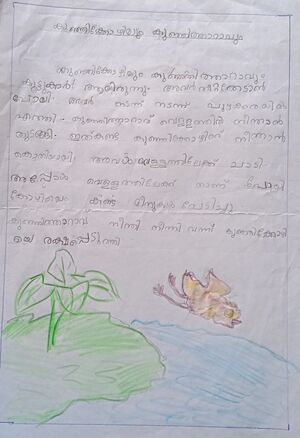 കുഞ്ഞിക്കോഴിയും കുഞ്ഞിത്താറാവും
കുഞ്ഞിക്കോഴിയും കുഞ്ഞിത്താറാവും
കൂട്ടുകാർ ആയിരുന്നു. അവർ തീറ്റതേടാൻ
പോയി അവർ നടന്ന് നടന്ന് പുഴക്കരയിൽ
എത്തി. കുഞ്ഞിത്താറാവ് വെള്ളത്തിൽ നീന്താൻ
തുടങ്ങി. ഇത്കണ്ട കുഞ്ഞിക്കോഴിക്ക് നീന്താൻ
കൊതിയായി അവൾ വെള്ളത്തിലേക്ക് ചാടി
അപ്പോൾ വെള്ളത്തിലേക്ക് താണ് പോയി
കോഴിയെ കണ്ട് മീനുകൾ പേടിച്ചു
കുഞ്ഞിത്താറാവ് നീന്തി നീന്തി വന്ന് കുഞ്ഞിക്കോഴി
യെ രക്ഷപ്പെടുത്തി